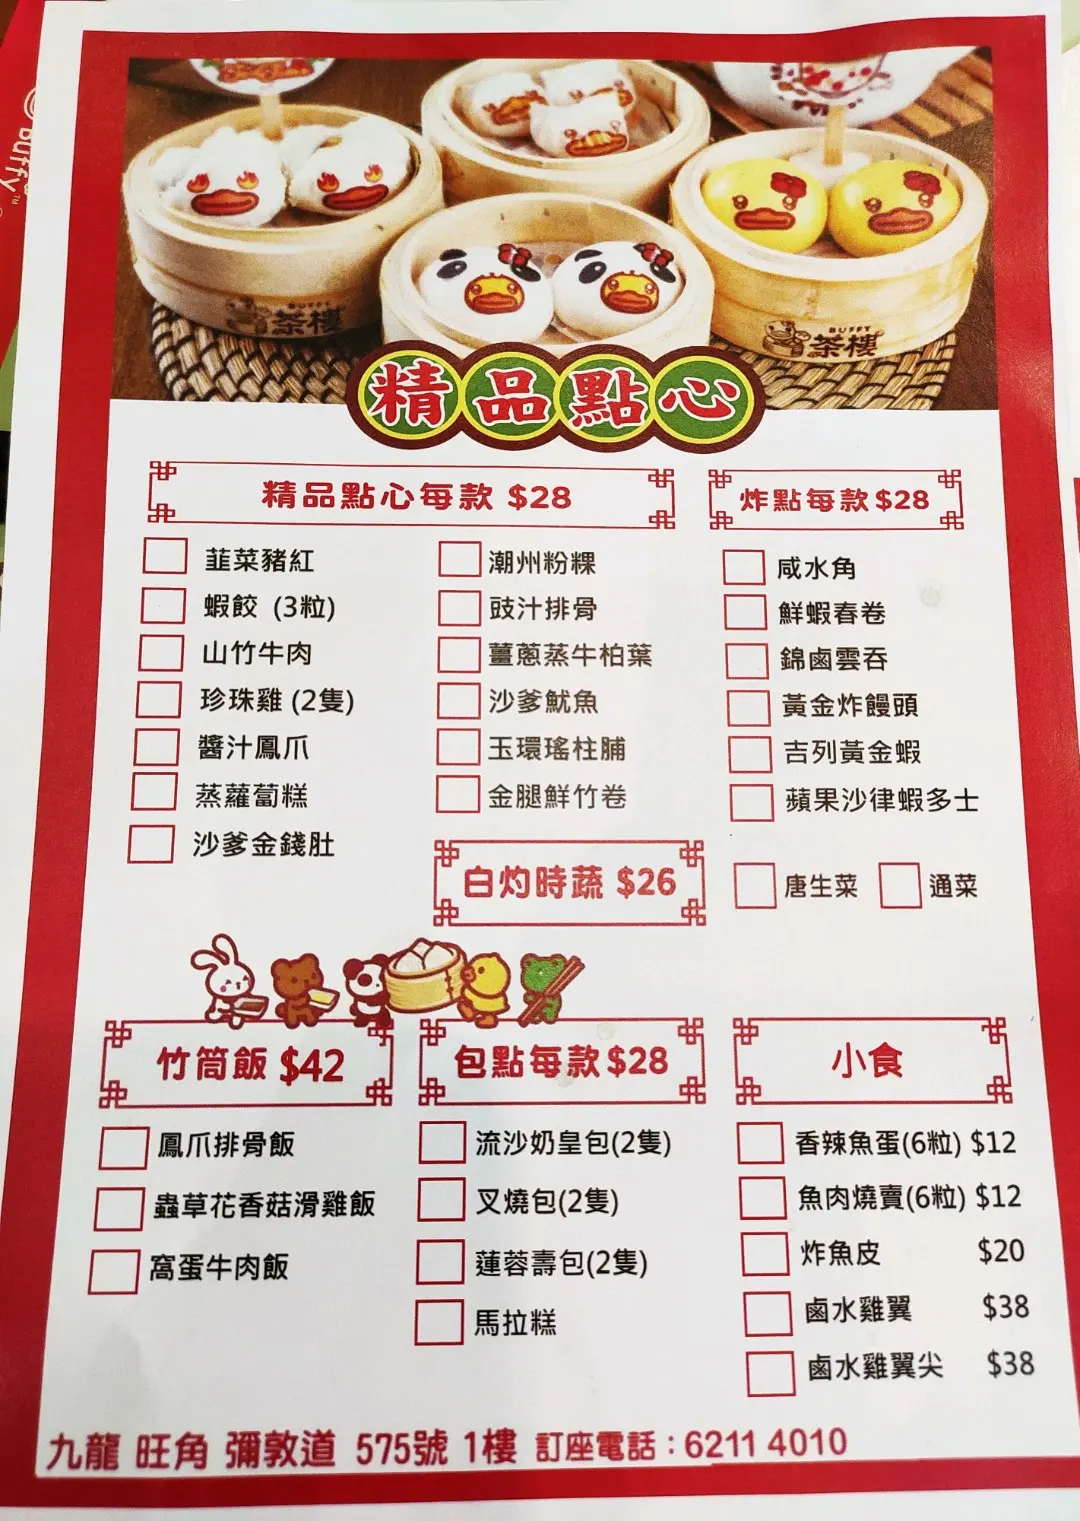 Buffy
BUFFY
茶樓
BUFFY
茶樓
精品點心
精品點心每款 $28
韮菜豬紅
蝦餃 (3粒)
山竹牛肉
珍珠雞 (2隻)
醬汁鳳爪
蒸蘿蔔糕
沙爹金錢肚
潮州粉粿
豉汁排骨
薑蔥蒸牛柏葉
沙爹魷魚
玉環瑤柱脯
金腿鮮竹卷
炸點每款 $28
咸水角
鮮蝦春卷
錦鹵雲吞
黃金炸饅頭
吉列黃金蝦
蘋果沙律蝦多士
白灼時蔬 $26
唐生菜 通菜
竹筒飯 $42
鳳爪排骨飯
蟲草花香菇滑雞飯
窩蛋牛肉飯
包點每款 $28
流沙奶皇包(2隻)
叉燒包(2隻)
蓮蓉壽包(2隻)
馬拉糕
小食
香辣魚蛋(6粒) $12
魚肉燒賣(6粒) $12
炸魚皮 $20
鹵水雞翼 $38
鹵水雞翼尖 $38
九龍 旺角 彌敦道 575號 1樓 訂座電話：6211 4010